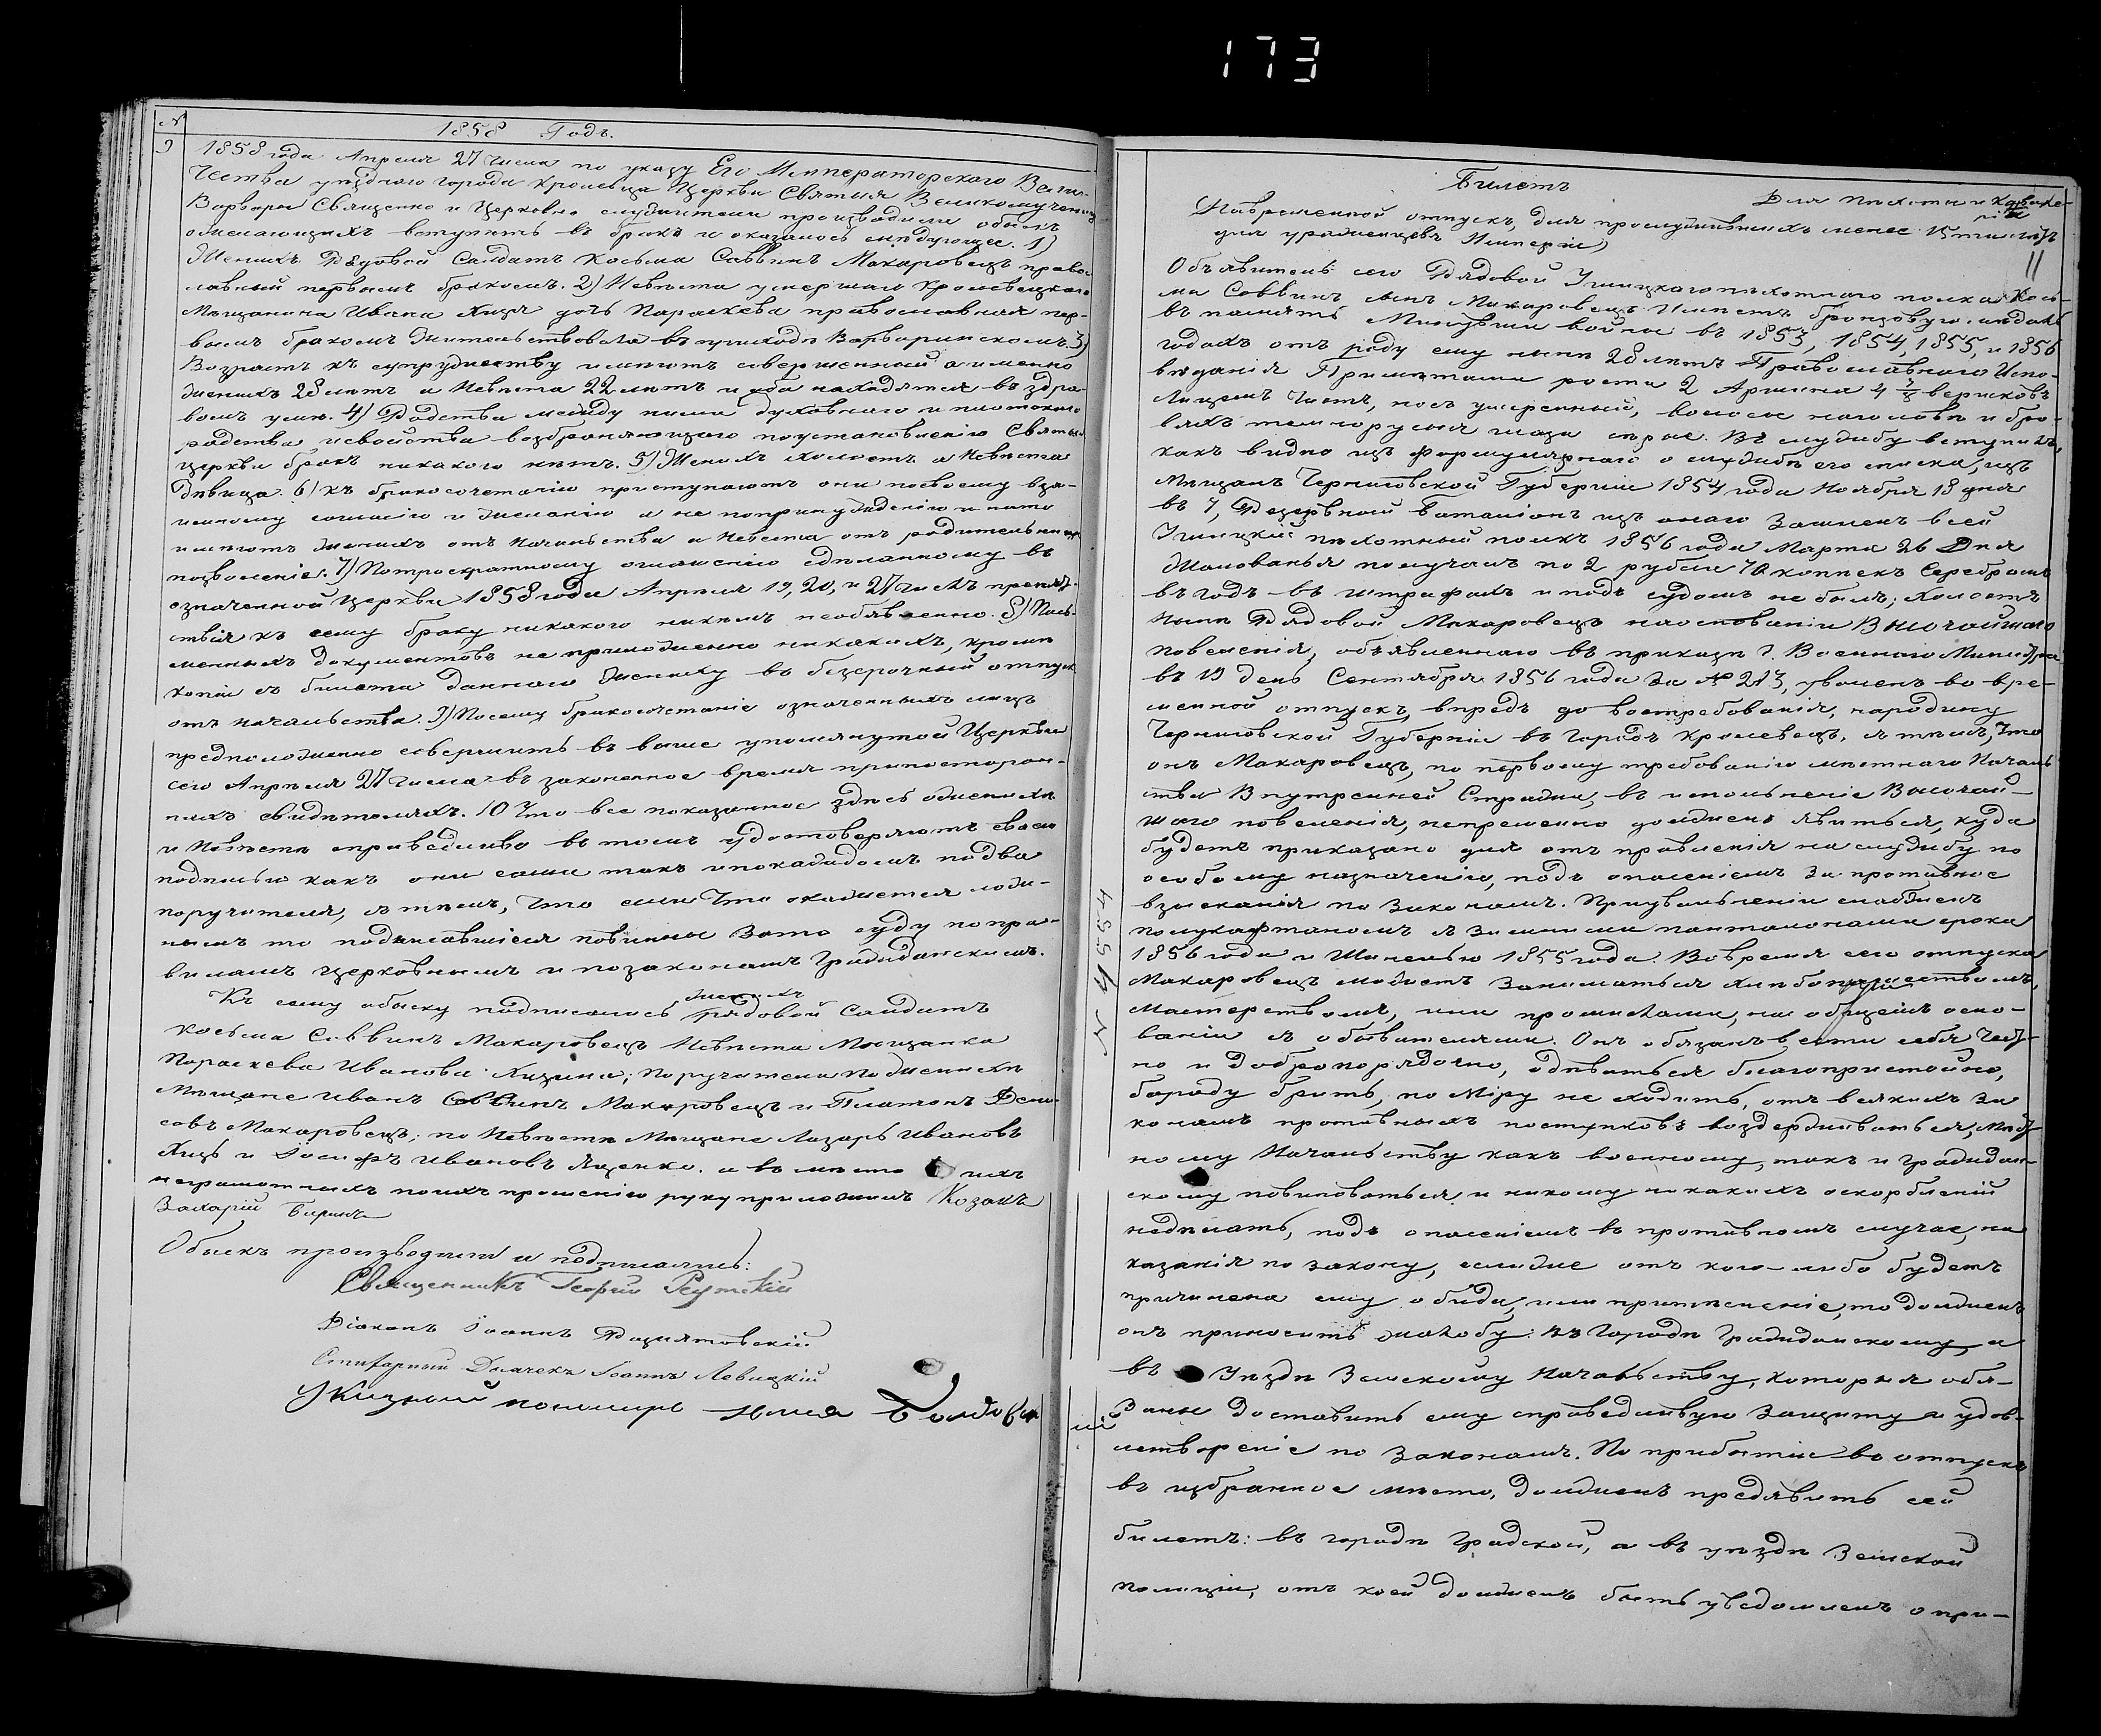 173
№
1858 Годъ.
9
1858 года Апреля 27 числа по указу Его Императорского Вели-
чества уѣзднаго города Кролевца Церкви Святыя Великомученицы
Варвары Священно и Церковно служители производили обыскъ
о желающихъ вступить въ бракъ и оказалось слѣдующее. 1)
Женихъ Рядовой Салдатъ Косьма Саввинъ Макаровецъ право-
лавный первымъ бракомъ. 2) Невѣста умершаго Кролевецкаго
Мѣщанина Ивана Хизя дочь Параскева православная пер-
вымъ бракомъ жительствовала въ приходѣ Варваринскомъ. 3)
Возрастъ къ супружеству имѣютъ совершенный а именно
женихъ 28 лѣтъ а Невѣста 22 лѣтъ и оба находятся въ здра-
вомъ умѣ. 4) Родства между ними духовнаго и плотскаго
родства и свойства возбраняющаго по установленію Святыя
церкви бракъ никакого нѣтъ. 5) Женихъ холостъ а Невѣста
Дѣвица. 6) къ бракосочетанію приступаютъ они посвоему вза-
имному согласію и желанію а не попринужденію и нато
имѣютъ женихъ отъ Начальства а Невеста отъ родительницы
позволеніе. 7) Потроекратному оглашенію сдѣланному въ
означенной Церкви 1858 года Апрѣля 19, 20, и 27 числъ препят-
ствія къ сему браку никакого никѣмъ необъявленно. 8) Пись-
менныхъ документовъ не приложенно никакихъ, кромѣ
копіи съ билета даннаго Жениху въ безсрочный отпускъ
отъ начальства. 9) Посему бракосочетаніе означенныхъ лицъ
предположенно совершить въ выше упомянутой Церкви
сего Апрѣля 27 числа въ законенное время припосторон-
нихъ свидѣтеляхъ. 10 Что все показанное здѣсь ожениха
и Невѣстѣ справедливо въ томъ удостоверяютъ своею
подписью какъ они сами такъ ипокаждомъ подва
поручителя, сътѣмъ, что если что окажется лож-
нымъ то подписавшіеся повинны Зато суду попра-
виламъ Церковнымъ и позаконамъ Гражданскимъ.
женихъ
Къ сему обыску подписались рядовой Салдатъ
Косьма Саввинъ Макаровецъ Невѣста Мѣщанка
Параскева Иванова Хизина; Поручители Поженихѣ
Мѣщане Иванъ Саввинъ Макаровецъ и Платонъ Дени-
совъ Макаровецъ; по Невѣстѣ Мѣщане Лазарь Ивановъ
Хизь и Іосифъ Ивановъ Яценко. а въ мѣсто ихъ
неграмотныхъ поихъ прошенію руку приложилъ Козакъ
Захарій Бирила
Обыскъ производили и подписались:
Священникъ Георгій Реутскій
Діаконъ Іоаннъ
Дьячекъ Іоаннъ Левицкій
Указный пономарь Илия
Билетъ
Для пѣхоты и Кавале-
ріи
Навременной отпускъ, для прослужившихъ менее 15ти лѣтъ
для уроженцевъ Имперіи
11
Объявитель сего Рядовой Углицкаго пѣхотнаго полка Кось-
ма Саввинъ сынъ Макаровецъ Имѣетъ бронзовую медаль
въ память Минувшей войны въ 1853, 1854, 1855, и 1856
годахъ отъ роду ему нынѣ 28 лѣтъ Православнаго Испо-
вѣданія Примѣтами роста 2 Аршина 4 7/8 вершковъ
Лицемъ Чистъ, носъ умеренный, волосы наголовѣ и бро-
вяхъ темнорусыя глаза серые. Въ службу вступилъ,
какъ видно изъ Формулярнаго о службѣ его списка, изъ
Мѣщанъ Черниговской Губерніи 1854 года Ноября 18 дня
въ 7, Резервный Баталіонъ изъ онаго Зачисленъ всей
Углицкій пѣхотный полкъ 1856 года Марта 26 Дня
Жалованья получалъ по 2 рубли 70 копѣекъ Серебромъ
въ годъ въ штрафахъ и подъ судомъ не былъ; холостъ
Нынѣ Рядовой Макаровецъ наоснованіи Высочайшаго
повеленія, объявленнаго въ приказѣ Г. Военнаго Министра
въ 19 день Сентября 1856 года За № 213, уволенъ во вре-
менной отпускъ, впредь до востребованія, народину
Черниговской Губерніи въ Городъ Кролевецъ, съ тѣмъ, что
онъ Макаровецъ, по первому требованію мѣстнаго Началь-
ства Внутренней Стражи, въ исполненіе Высочай-
шаго повеленія, непременно долженъ явиться, куда
будетъ приказано для отъ правленія на службу по
особому назначенію, подъ опасеніемъ За противное
взысканія по Законамъ. Приувольненіи снабженъ
полукафтаномъ съ Зимними панталонами срока
1856 года и Шинелью 1855 года. Вовремя сего отпуска
Макаровецъ можетъ заниматься хлебопашествомъ,
мастерствомъ, или промыслами, на общемъ осно-
ваніи съ обывателями. Онъ обязанъ вести себя Чест-
но и Добропорядочно, одѣваться благопристойно,
бороду брить, по Міру не ходить, отъ всякихъ За
конамъ противныхъ поступковъ воздерживаться, Мѣст-
ному Начальству какъ военному, такъ и граждан-
скому повиноваться и никому никакихъ оскорбленій
недѣлать, подъ опасеніемъ въ противномъ случае, на
казанія по закону, еслиже отъ кого-либо будетъ
причинена ему обида, или притѣсненіе, то долженъ
онъ приносить жалобу: въ Городѣ Гражданскому, а
въ Уѣздѣ Земскому Начальству, которыя обя-
заны доставить ему справедливую Защиту и удов-
летвореніе по Законамъ. По прибытіи во отпускъ
въ избранное мѣсто, долженъ предъявить сей
билетъ: въ городѣ Градской, а въ уѣздѣ Земской
полиціи, отъ коей долженъ быть уведомленъ о при-